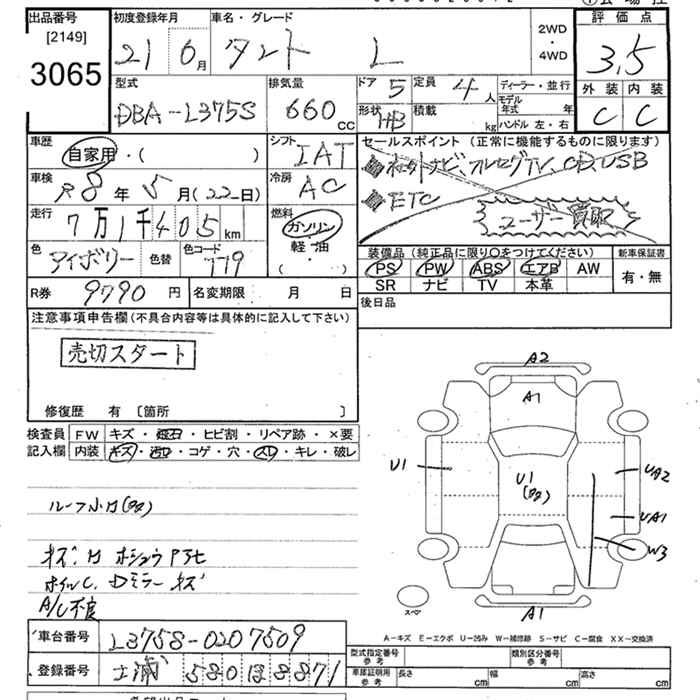 出品番号
[2149]
3065
初度登録年月
21 6月
車名・グレード
タント L
2WD
・
4WD
評価点
3.5
外装 内装
C C
型式
DBA-L375S
排気量
660 cc
ドア 5
定員 4人
形状 HB
積載 kg
ディーラー・並行
モデル年式 年
ハンドル 左・右
車歴
自家用・( )
シフト
IAT
セールスポイント(正常に機能するものに限ります)
ナビ、フルセグTV、CD、USB
ETC
ユーザー買取
車検
R8年5月(22日)
冷房
AC
走行
7万1千405km
燃料
ガソリン
軽・油
・( )
色
アイボリー
色替
色コード
T19
装備品(純正品に限り○をつけてください)
PS PW ABS エアB AW
SR ナビ TV 本革
新車保証書
有・無
R券 9790円
名変期限 月 日
後日品
注意事項申告欄(不具合内容等は具体的に記入して下さい)
売切スタート
修復歴 有 〔箇所 〕
検査員記入欄
FW キズ・飛石・ヒビ割・リペア跡・×要
内装 キズ・汚れ・コゲ・穴・スレ・キレ・破レ
A2
A1
U1
U1
UA2
UA1
W3
A1
スペア
ルーフ小凹
A/C不良
A-キズ E-エクボ U-凹み W-補修跡 S-サビ C-腐食 XX-交換済
車台番号
L375S-0207509
登録番号
580 8871
型式指定番号
参考
類別区分番号
参考
車庫証明用
参考
長さ cm
幅 cm
高さ cm